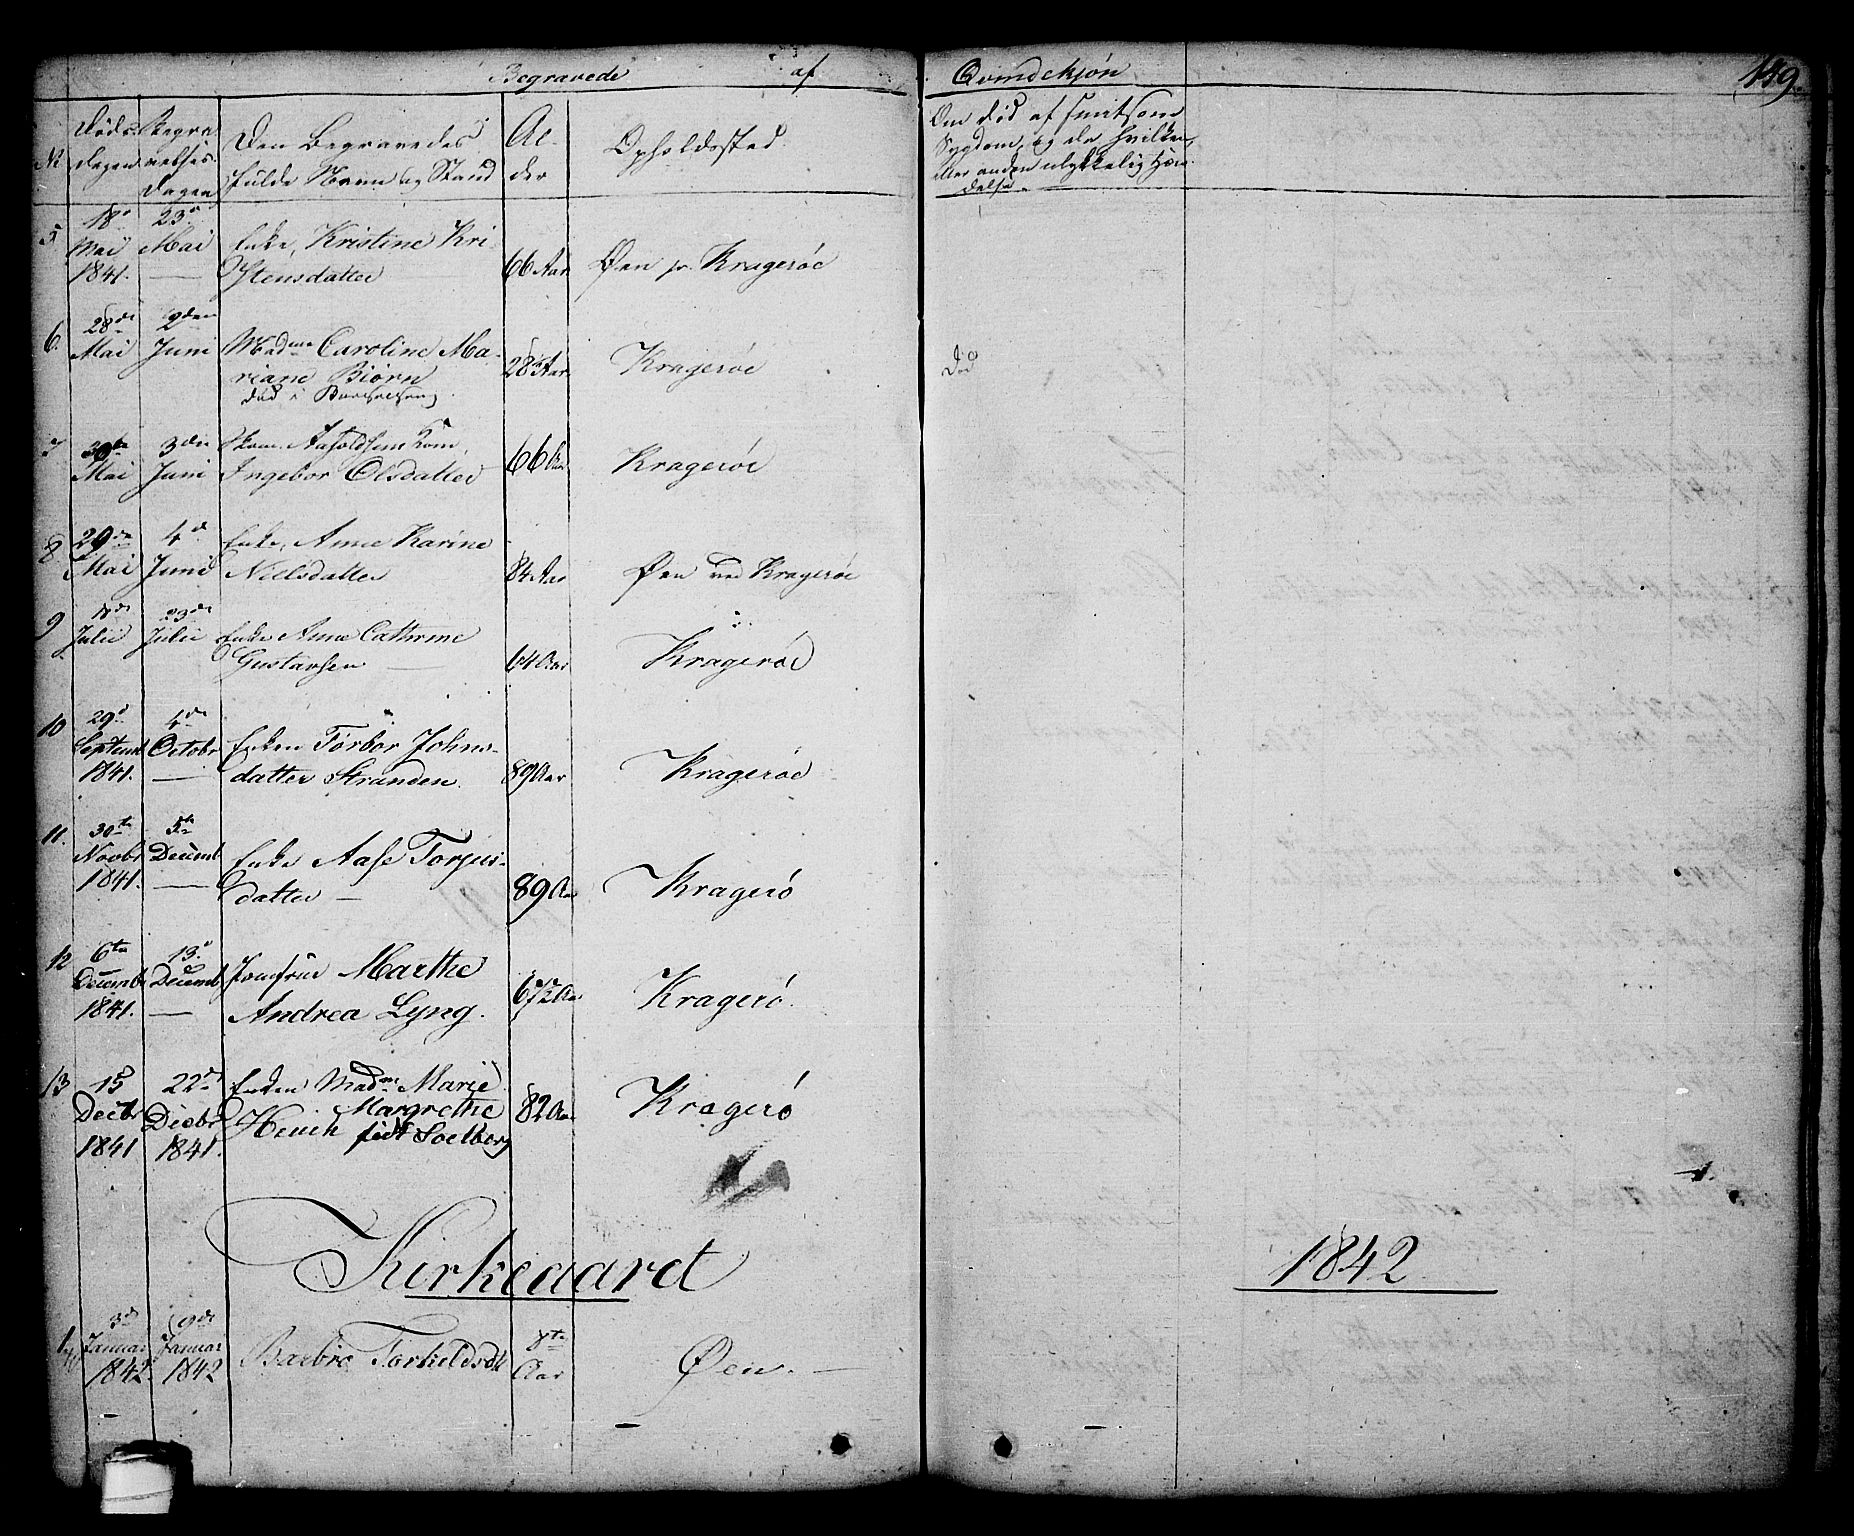 Begravede af Qvindekjøn 149.
Nr Døds Dagen Begravelses Dagen Den Begravedes fulde Navn og Stand Alder Opholdssted
Om død af smitsom
Sygdom, og da hvilken,
eller anden ulykkelig Hændelse
5 18d Mai 1841. 23d Mai — Enke, Kristine Kristensdatter 66 Aar Øen pr. Kragerøe
6. 28de Mai 2den Juni Madme Caroline Mariane Biørn
død i Barselseng. 28 Aar Kragerøe
7 30te Mai 3die Juni Kone, Ingebor Olsdatter 66 Aar Kragerøe
8. 29de Mai 4d Juni Enke, Anne Karine Neelsdatter 84 Aar Øen ved Kragerøe
9 Julii 23de Julii Enke Anne Cathrine Gustavsen — 64 Aar Kragerøe
10 29d Septemb 1841. 4de Octobr — Enken Torbor Johnsdatter Stranden. 89 Aar Kragerøe
11. 30te Novbr 1841. 5te Decemb — Enke Aase Torjusdatter — 89 Aar Kragerø
12 6te Decembr 1841. 13d Decemb — Jomfrue Marthe Andrea Lyng. 67½ Aar Kragerø.
13 15d Decbr 1841 22d Decbr 1841. Enken Madme Marie Margrethe
Henich født Soelberg 82 Aar Kragerø
Kirkegaard 1842
1. 3de Januar 1842. 9de Januar 1842 Barbro Torkeldsdtr 8te Aar Øen. —